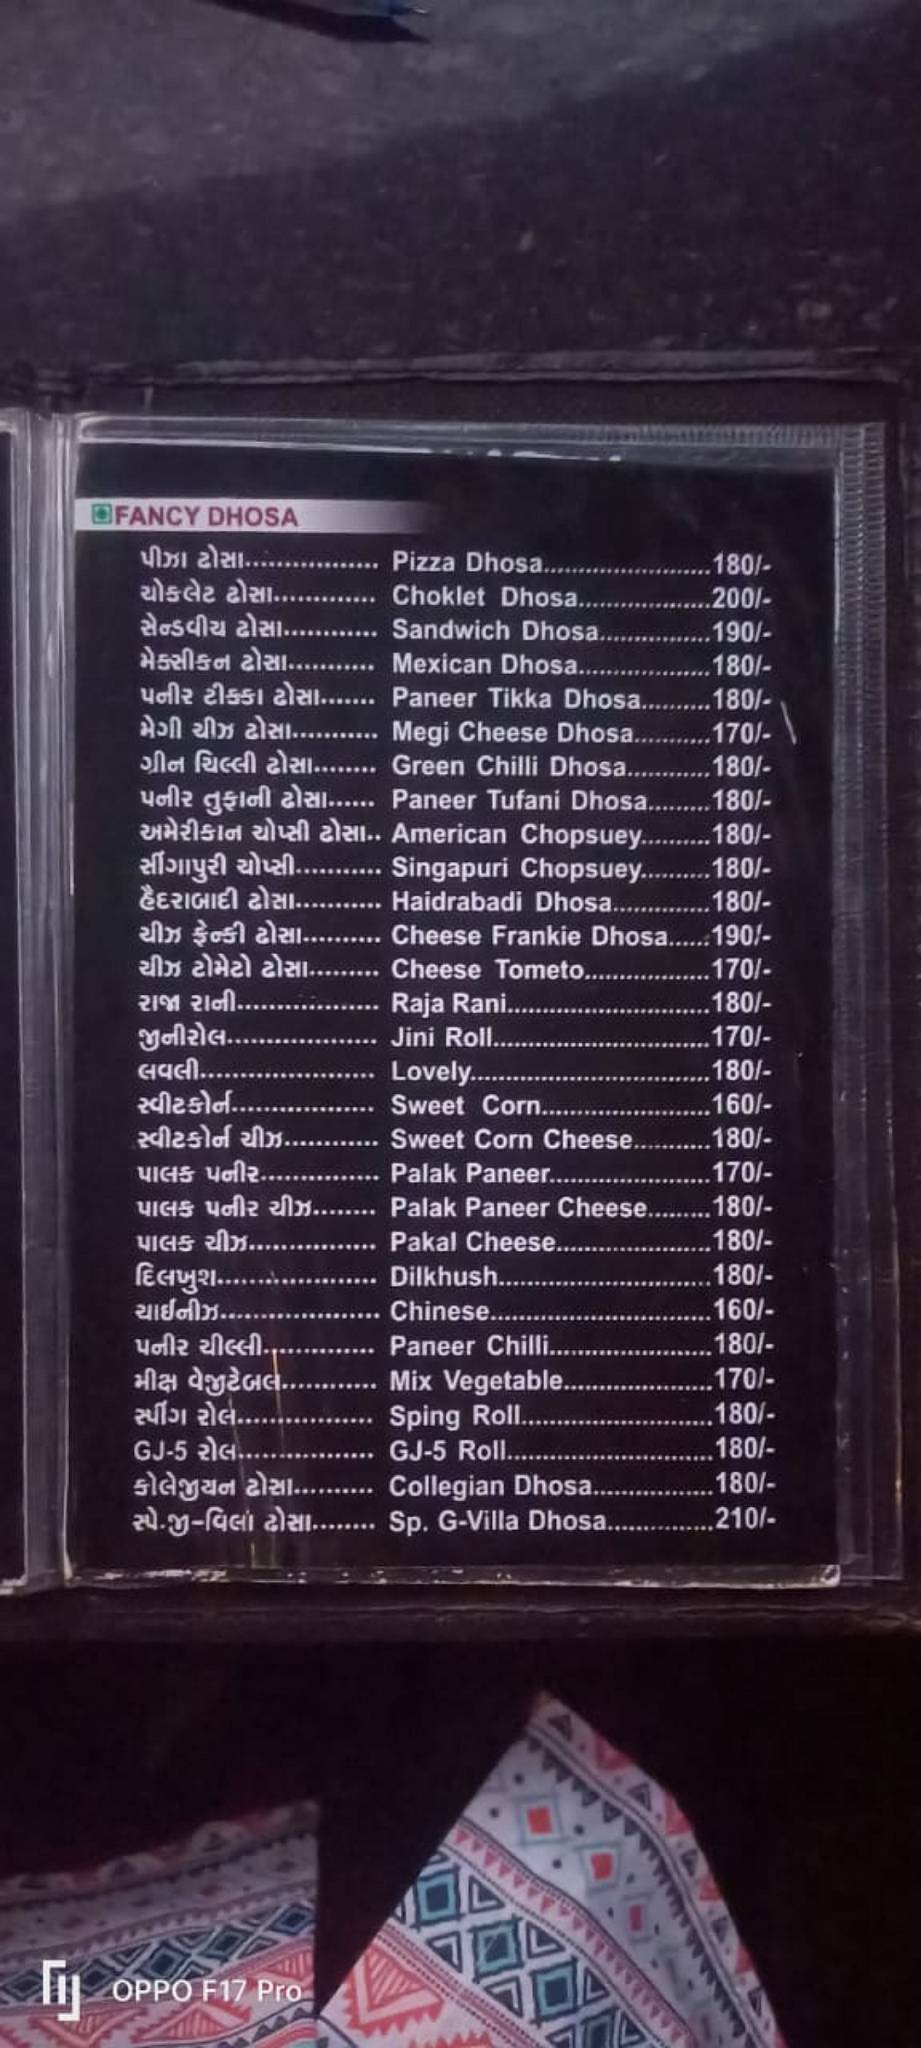 FANCY DHOSA
પીઝા ઢોસા.................. Pizza Dhosa........................180/-
ચોકલેટ ઢોસા............. Choklet Dhosa...................200/-
સેન્ડવીચ ઢોસા............ Sandwich Dhosa................190/-
મેક્સીકન ઢોસા........... Mexican Dhosa...................180/-
પનીર ટીક્કા ઢોસા....... Paneer Tikka Dhosa..........180/-
મેગી ચીઝ ઢોસા........... Megi Cheese Dhosa...........170/-
ગ્રીન ચિલ્લી ઢોસા........ Green Chilli Dhosa............180/-
પનીર તુફાની ઢોસા...... Paneer Tufani Dhosa.........180/-
અમેરીકાન ચોપ્સી ઢોસા.. American Chopsuey..........180/-
સીંગાપુરી ચોપ્સી........... Singapuri Chopsuey..........180/-
હૈદરાબાદી ઢોસા........... Haidrabadi Dhosa..............180/-
ચીઝ ફ્રેન્કી ઢોસા.......... Cheese Frankie Dhosa......190/-
ચીઝ ટોમેટો ઢોસા......... Cheese Tometo..................170/-
રાજા રાની.................. Raja Rani.............................180/-
જીનીરોલ.................... Jini Roll...............................170/-
લવલી....................... Lovely..................................180/-
સ્વીટકોર્ન.................. Sweet Corn........................160/-
સ્વીટકોર્ન ચીઝ............ Sweet Corn Cheese...........180/-
પાલક પનીર............... Palak Paneer.......................170/-
પાલક પનીર ચીઝ........ Palak Paneer Cheese.........180/-
પાલક ચીઝ................. Pakal Cheese......................180/-
દિલખુશ..................... Dilkhush..............................180/-
ચાઈનીઝ..................... Chinese................................160/-
પનીર ચીલ્લી.............. Paneer Chilli.......................180/-
મીક્ષ વેજીટેબલ............ Mix Vegetable.....................170/-
સ્પીંગ રોલ.................. Sping Roll...........................180/-
GJ-5 રોલ.................. GJ-5 Roll.............................180/-
કોલેજીયન ઢોસા.......... Collegian Dhosa.................180/-
સ્પે.જી-વિલા ઢોસા........ Sp. G-Villa Dhosa...............210/-
OPPO F17 Pro